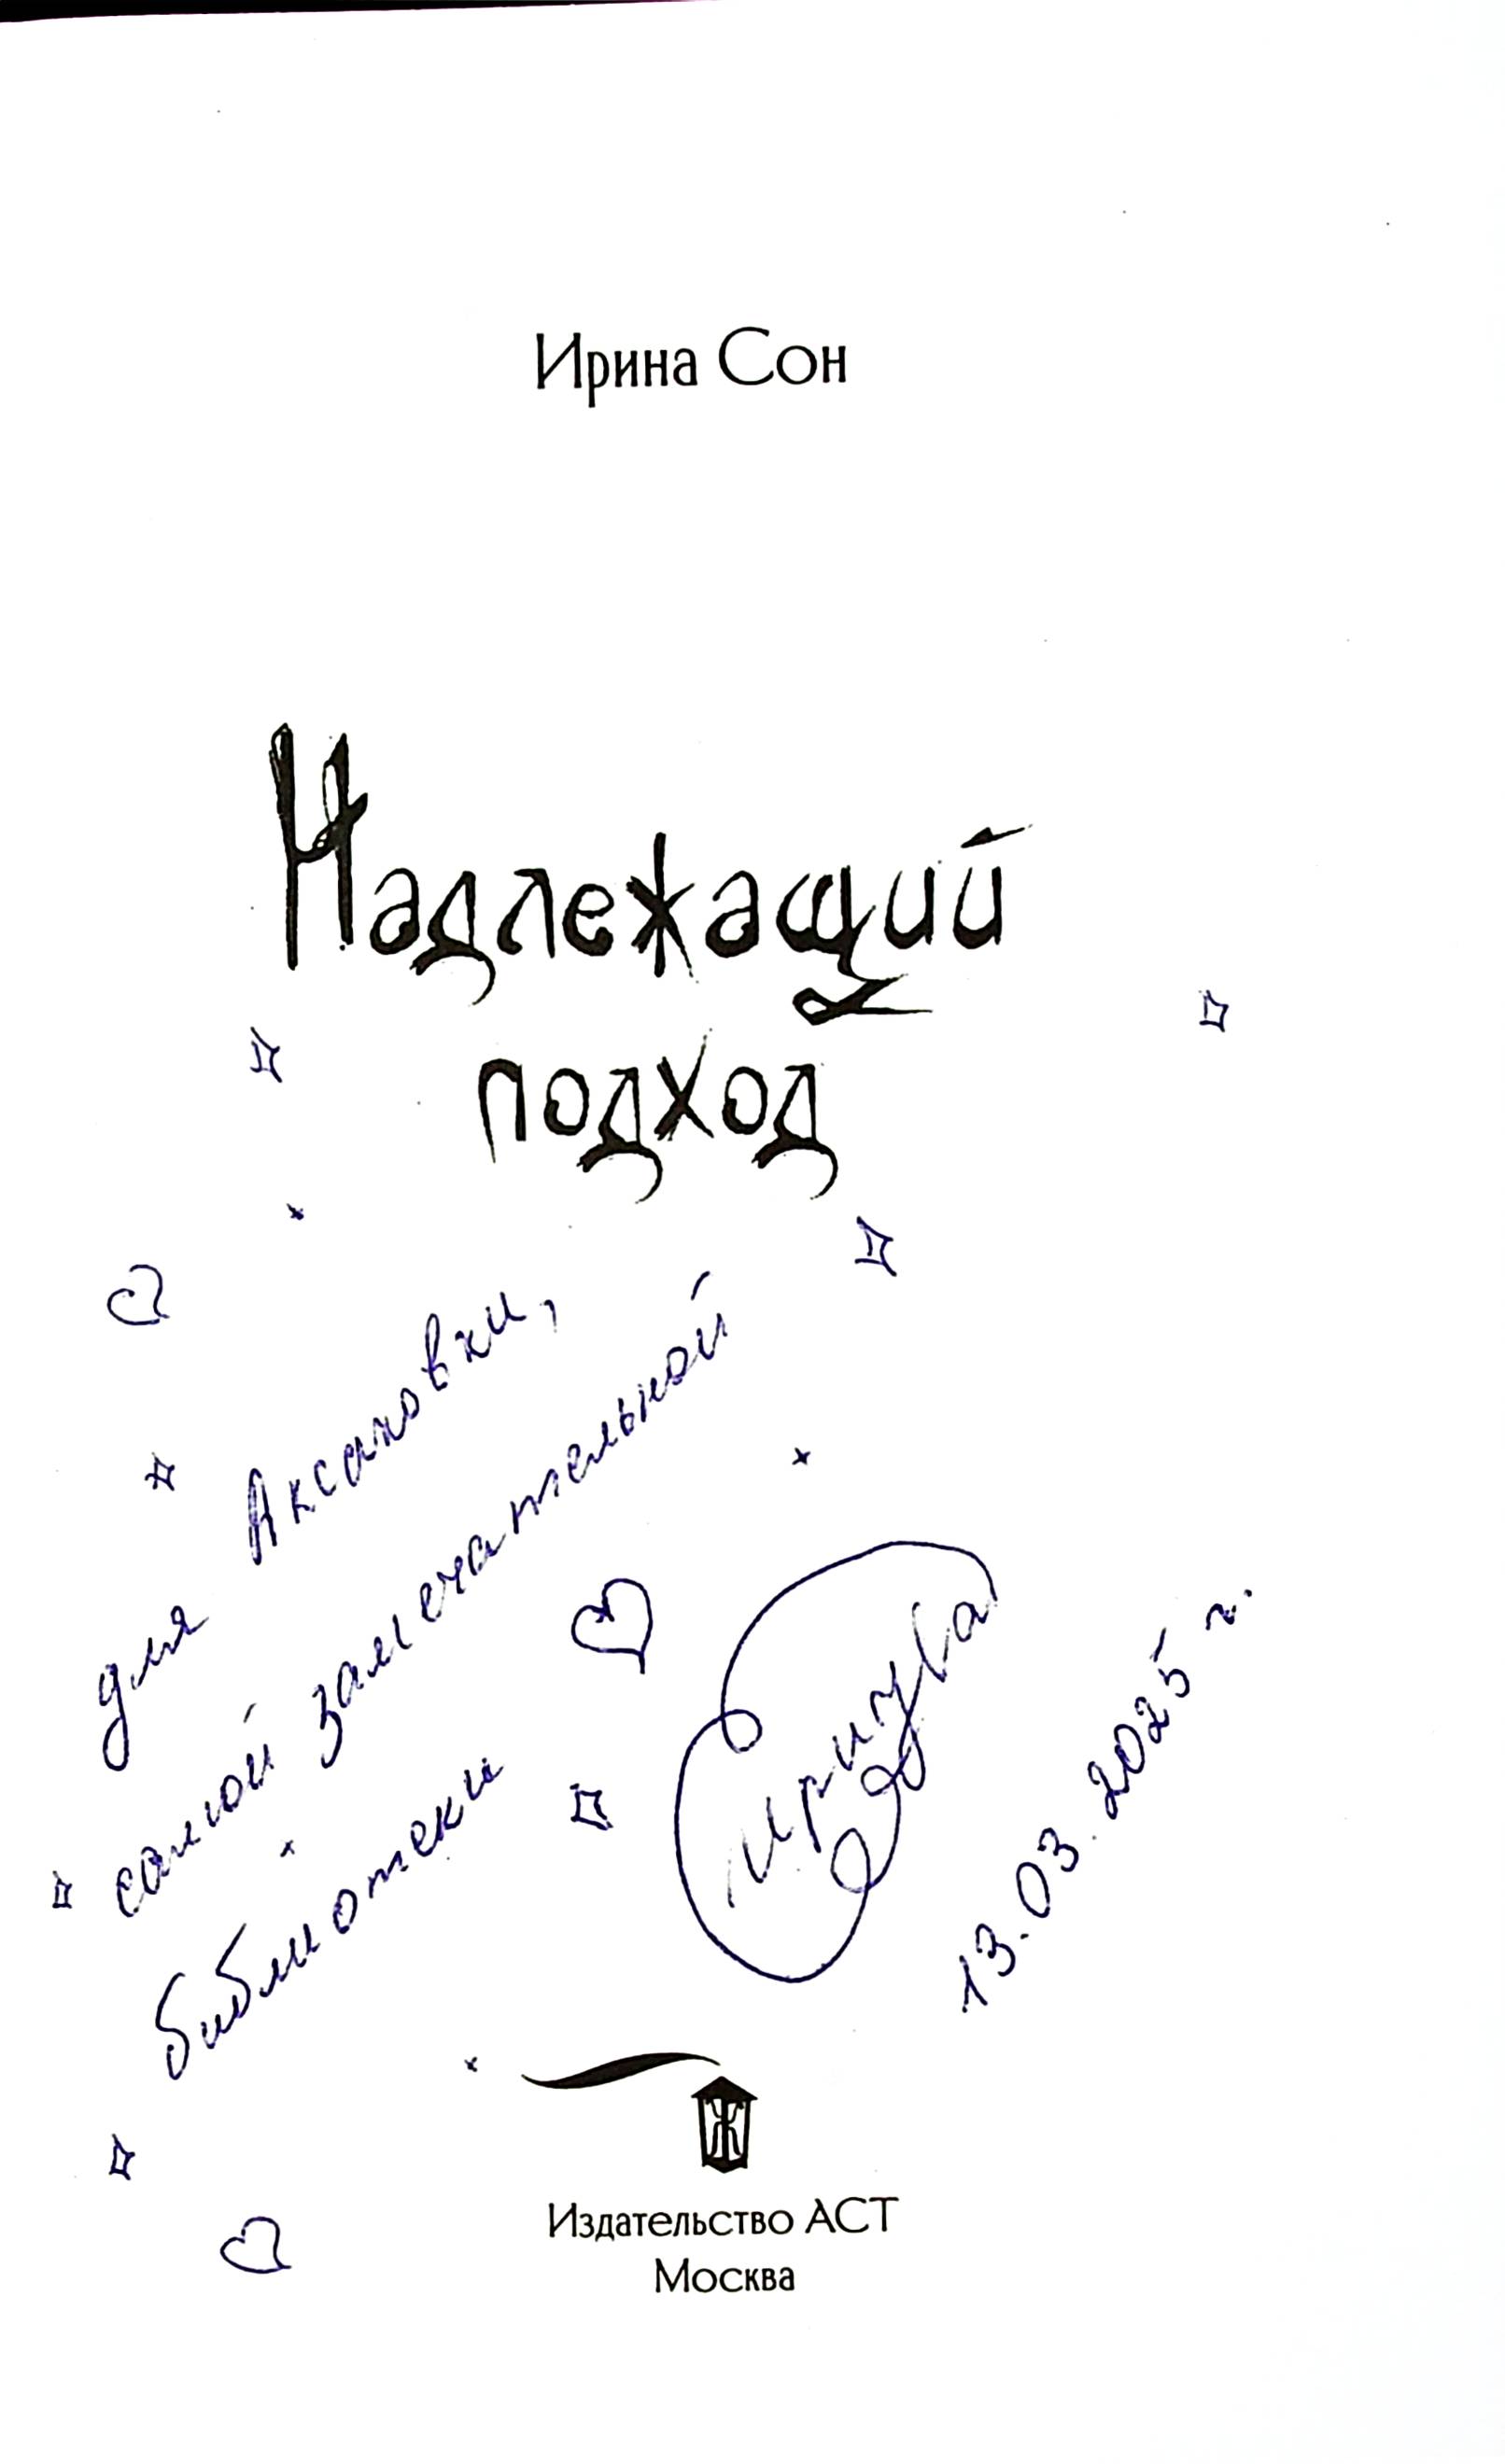 Ирина Сон
Надлежащий
подход
для Аксаковки,
самой замечательной
библиотеки
13.03.2025 г.
Ж
Издательство АСТ
Москва